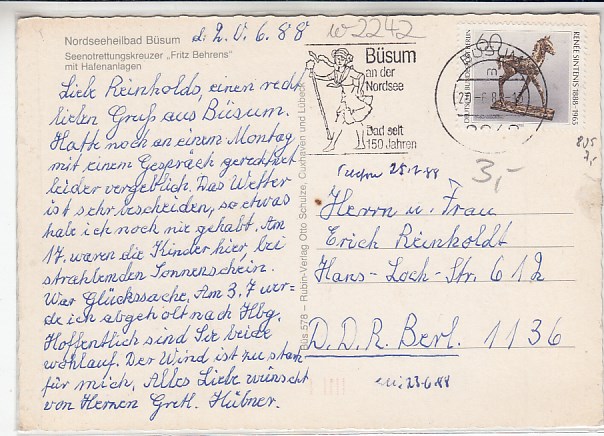 Nordseeheilbad Büsum
Seenotrettungskreuzer „Fritz Behrens"
mit Hafenanlagen
d. 2 V. 6. 88
w 2242
Liebe Reinholds, einen recht
lieben Gruß aus Büsum.
Hatte noch an einem Montag
mit einem Gespräch gerechnet
leider vergeblich. Das Wetter
ist sehr bescheiden, so etwas
hab ich noch nie gehabt. Am
17. waren die Kinder hier, bei
strahlendem Sonnenschein.
War Glückssache. Am 3.7 wer-
de ich abgeholt nach Hbg.
Hoffentlich sind Sie beide
wohlauf. Der Wind ist zu stark
für mich. Alles Liebe wünscht
von Herzen Gretl. Hübner.
Büs 578 – Rubin-Verlag Otto Schulze, Cuxhaven und Lübeck
Büsum
an der
Nordsee
Bad seit
150 Jahren
BÜSUM
2242
60
DEUTSCHE BUNDESPOST BERLIN
RENEE SINTENIS 1888-1965
805
7,-
3,-
25.7.88
Herrn u. Frau
Erich Reinholdt
Hans-Loch-Str. 612
D.D.R. Berl. 1136
23.6.88